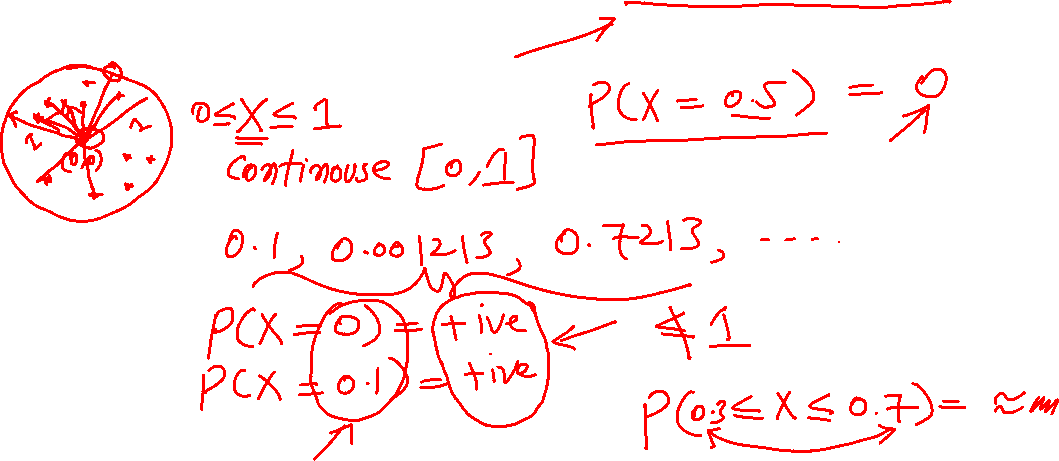 P(X = 0.5) = 0
0 ≤ X ≤ 1
1 1
(0,0)
continouse [0,1]
0.1, 0.001213, 0.7213, ....
P(X = 0) = +ive ≰ 1
P(X = 0.1) = +ive
P(0.3 ≤ X ≤ 0.7) = ≈